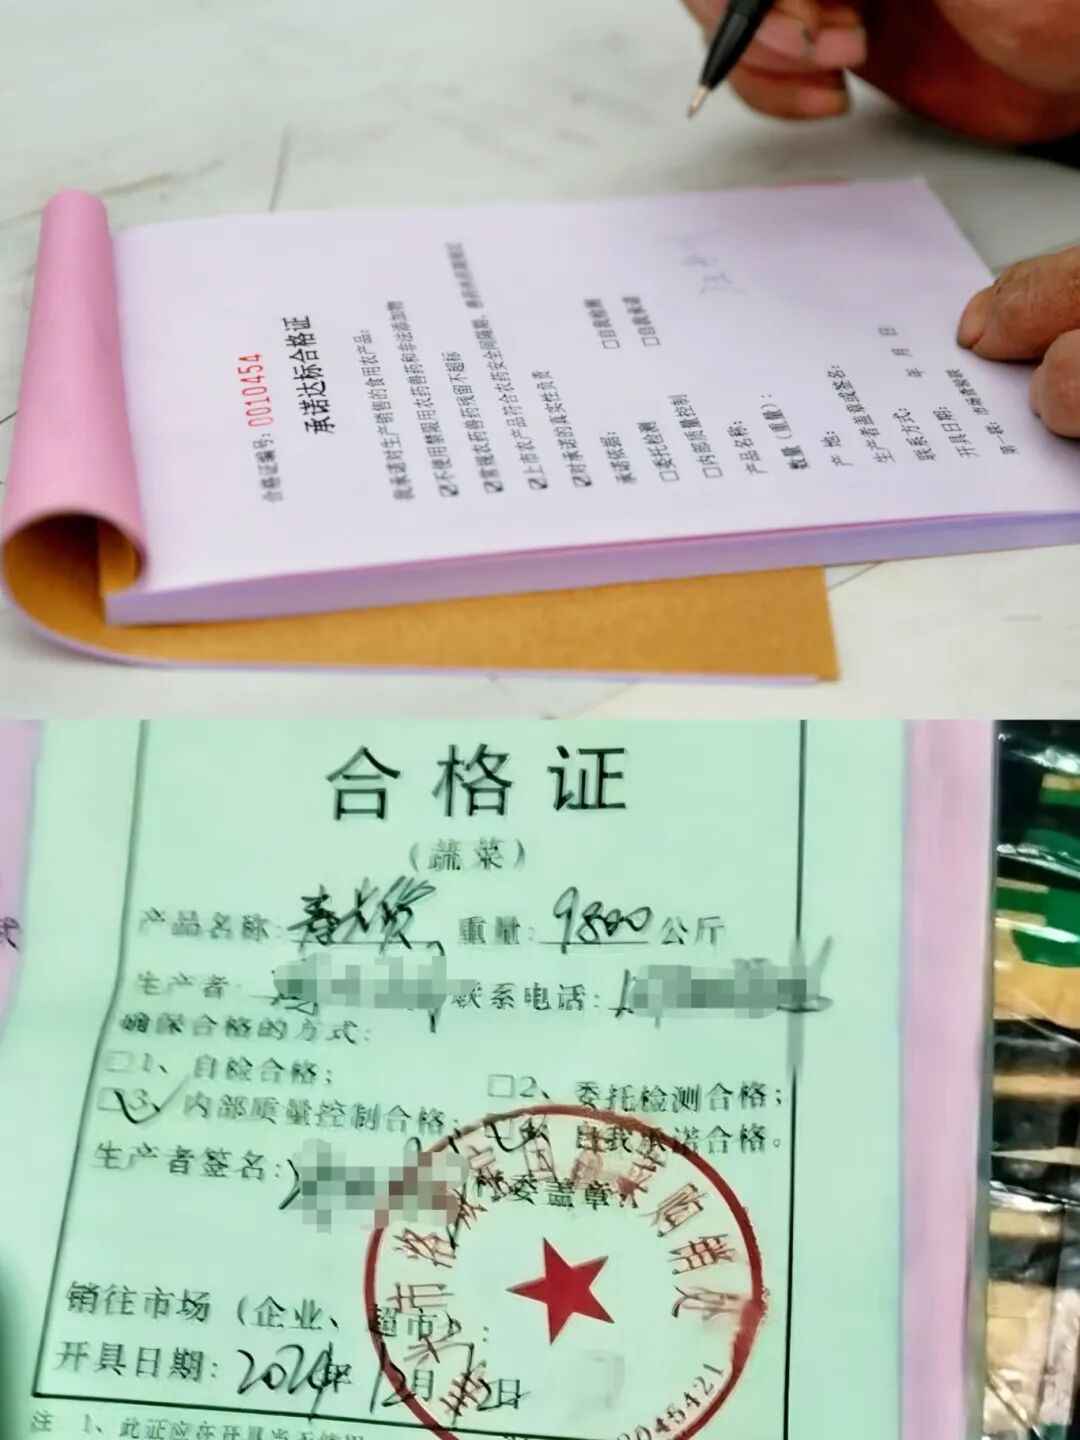 合格证编号: 0010454
承诺达标合格证
我承诺对生产销售的食用农产品:
☑不使用禁限用农药兽药和非法添加物
☑常规农药兽药残留不超标
☑上市农产品符合农药安全间隔期、
☑对承诺的真实性负责
承诺依据:
□委托检测 □自我检测
□内部质量控制 □自我承诺
产品名称:
数量(重量):
产 地:
生产者盖章或签名:
联系方式:
开具日期: 年 月 日
第一联:
合格证
(蔬菜)
产品名称: 重量: 9800 公斤
生产者: 联系电话:
确保合格的方式:
□1、自检合格; □2、委托检测合格;
□3、内部质量控制合格; 自我承诺合格。
生产者签名: 村委盖章:
购销处
销往市场(企业、超市):
开具日期: 2024年12月12日
0046421
注 1、此证应在